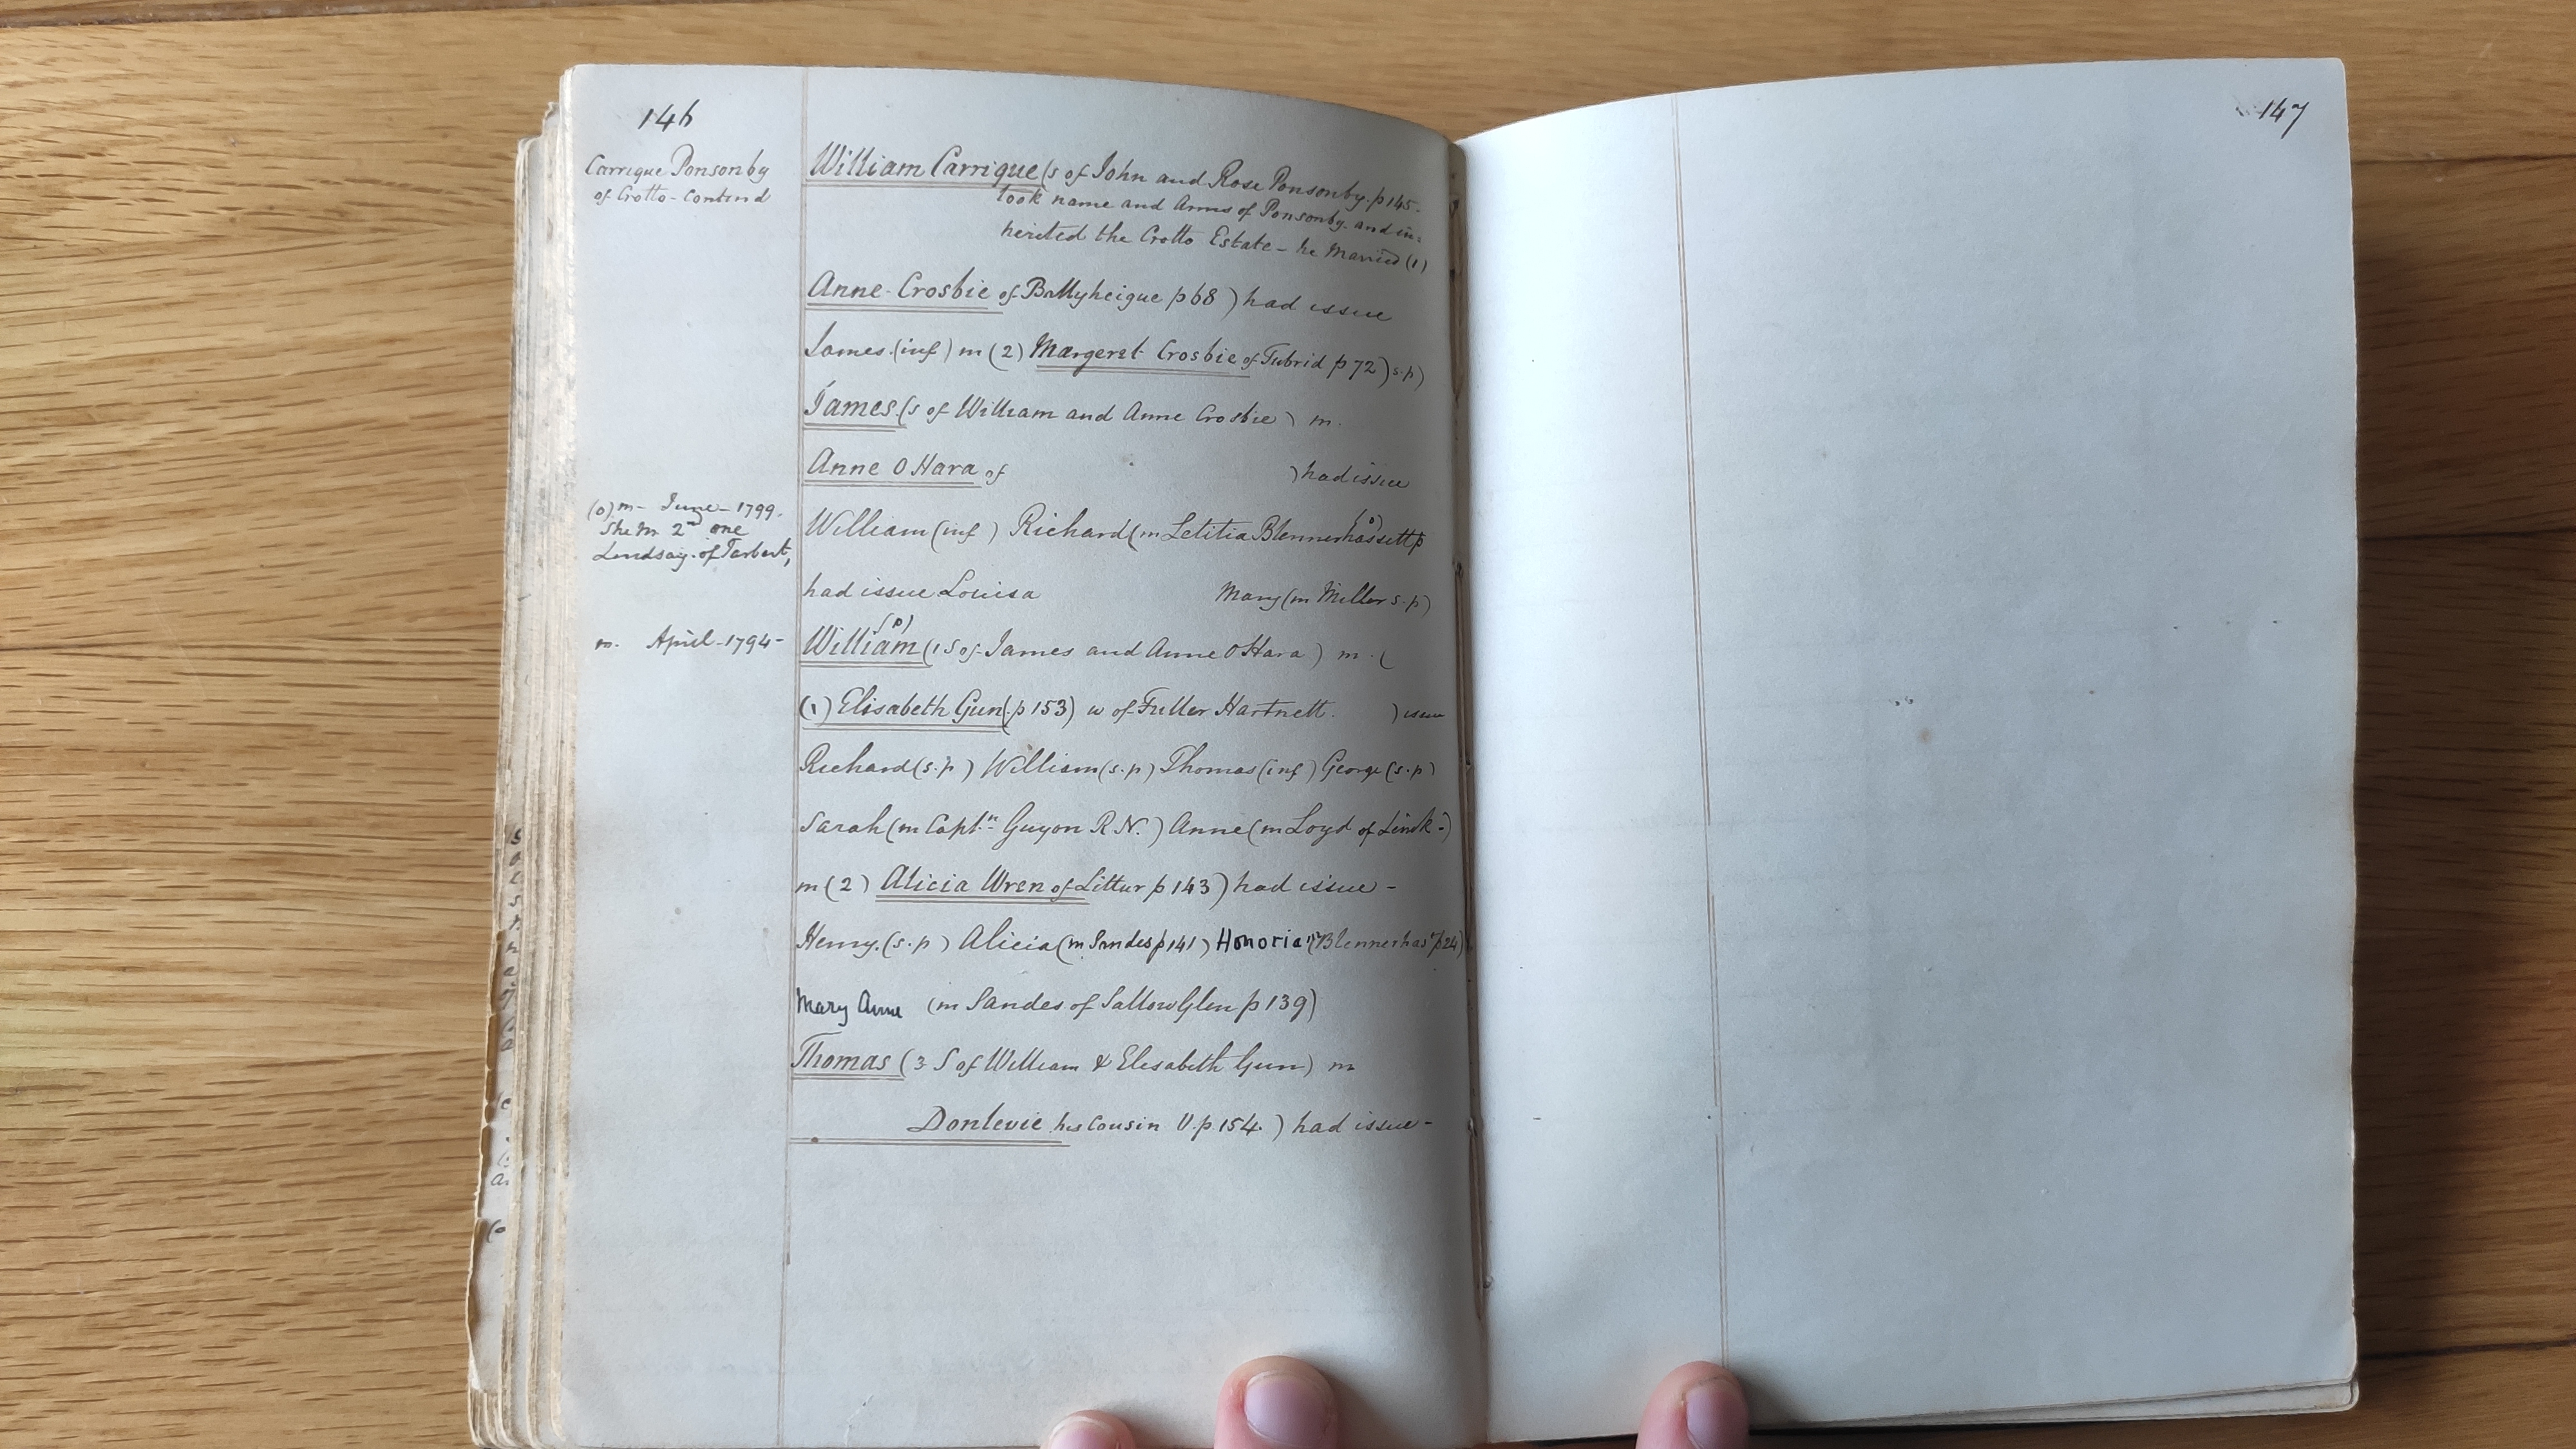 146
Carrique Ponsonby
of Crotto - Contind
William Carrique (s of John and Rose Ponsonby. p 145.
took name and Arms of Ponsonby. and in=
herited the Crotto Estate - he Married (1)
Anne Crosbie of Ballyheigue p 68 ) had issue
James (inf) m (2) Margeret Crosbie of Tubrid p 72 ) s.p)
James (s of William and Anne Crosbie ) m.
Anne O Hara of ) had issue
(o) m - June - 1799.
She m 2nd one
Lindsay. of Tarbert,
William (inf ) Richard (m Letitia Blennerhassett p (o)
had issue Louisa Mary (m Miller s.p)
m. April - 1794 -
(p)
William (1 S of James and Anne O Hara ) m. (
(1) Elisabeth Gun (p 153) w of Fuller Hartnett. ) issue
Richard (s.p ) William (s.p) Thomas (inf ) George (s.p)
Sarah (m Captn Guyon R. N. ) Anne (m Loyd of Limk-)
m (2) Alicia Wren of Littur p 143 ) had issue -
Henry. (s.p ) Alicia (m Sandes p 141 ) Honoria (m Blennerhastt p 24)
Mary Anne (m Sandes of Sallow Glen p 139)
Thomas (3 S of William & Elisabeth Gun) m
Donlevie his Cousin V. p. 154. ) had issue -
147